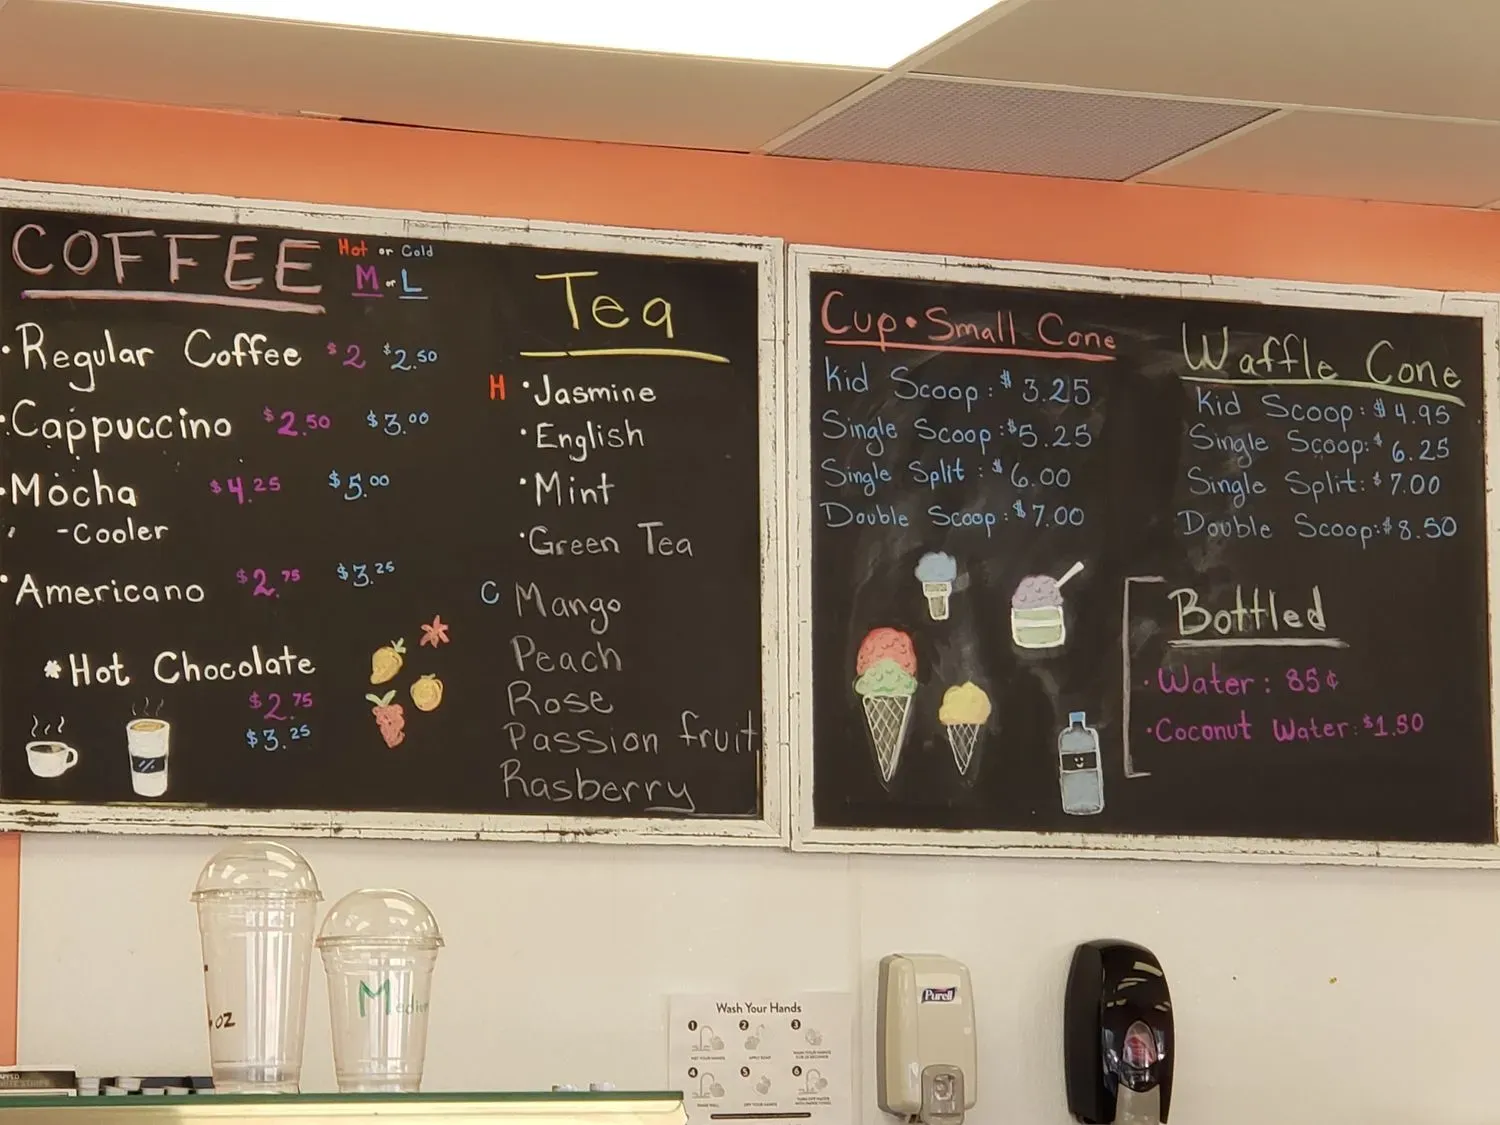 COFFEE
Hot or Cold
M or L
• Regular Coffee $2 $2.50
• Cappuccino $2.50 $3.00
• Mocha $4.25 $5.00
-Cooler
• Americano $2.75 $3.25
*Hot Chocolate
$2.75
$3.25
Tea
H • Jasmine
• English
• Mint
• Green Tea
C Mango
Peach
Rose
Passion fruit
Rasberry
Cup • Small Cone
Kid Scoop: $3.25
Single Scoop: $5.25
Single Split: $6.00
Double Scoop: $7.00
Waffle Cone
Kid Scoop: $4.95
Single Scoop: $6.25
Single Split: $7.00
Double Scoop: $8.50
Bottled
• Water: 85¢
• Coconut Water: $1.50
oz
Medium
Wash Your Hands
1 2 3
WET YOUR HANDS APPLY SOAP
4 5 6
Purell